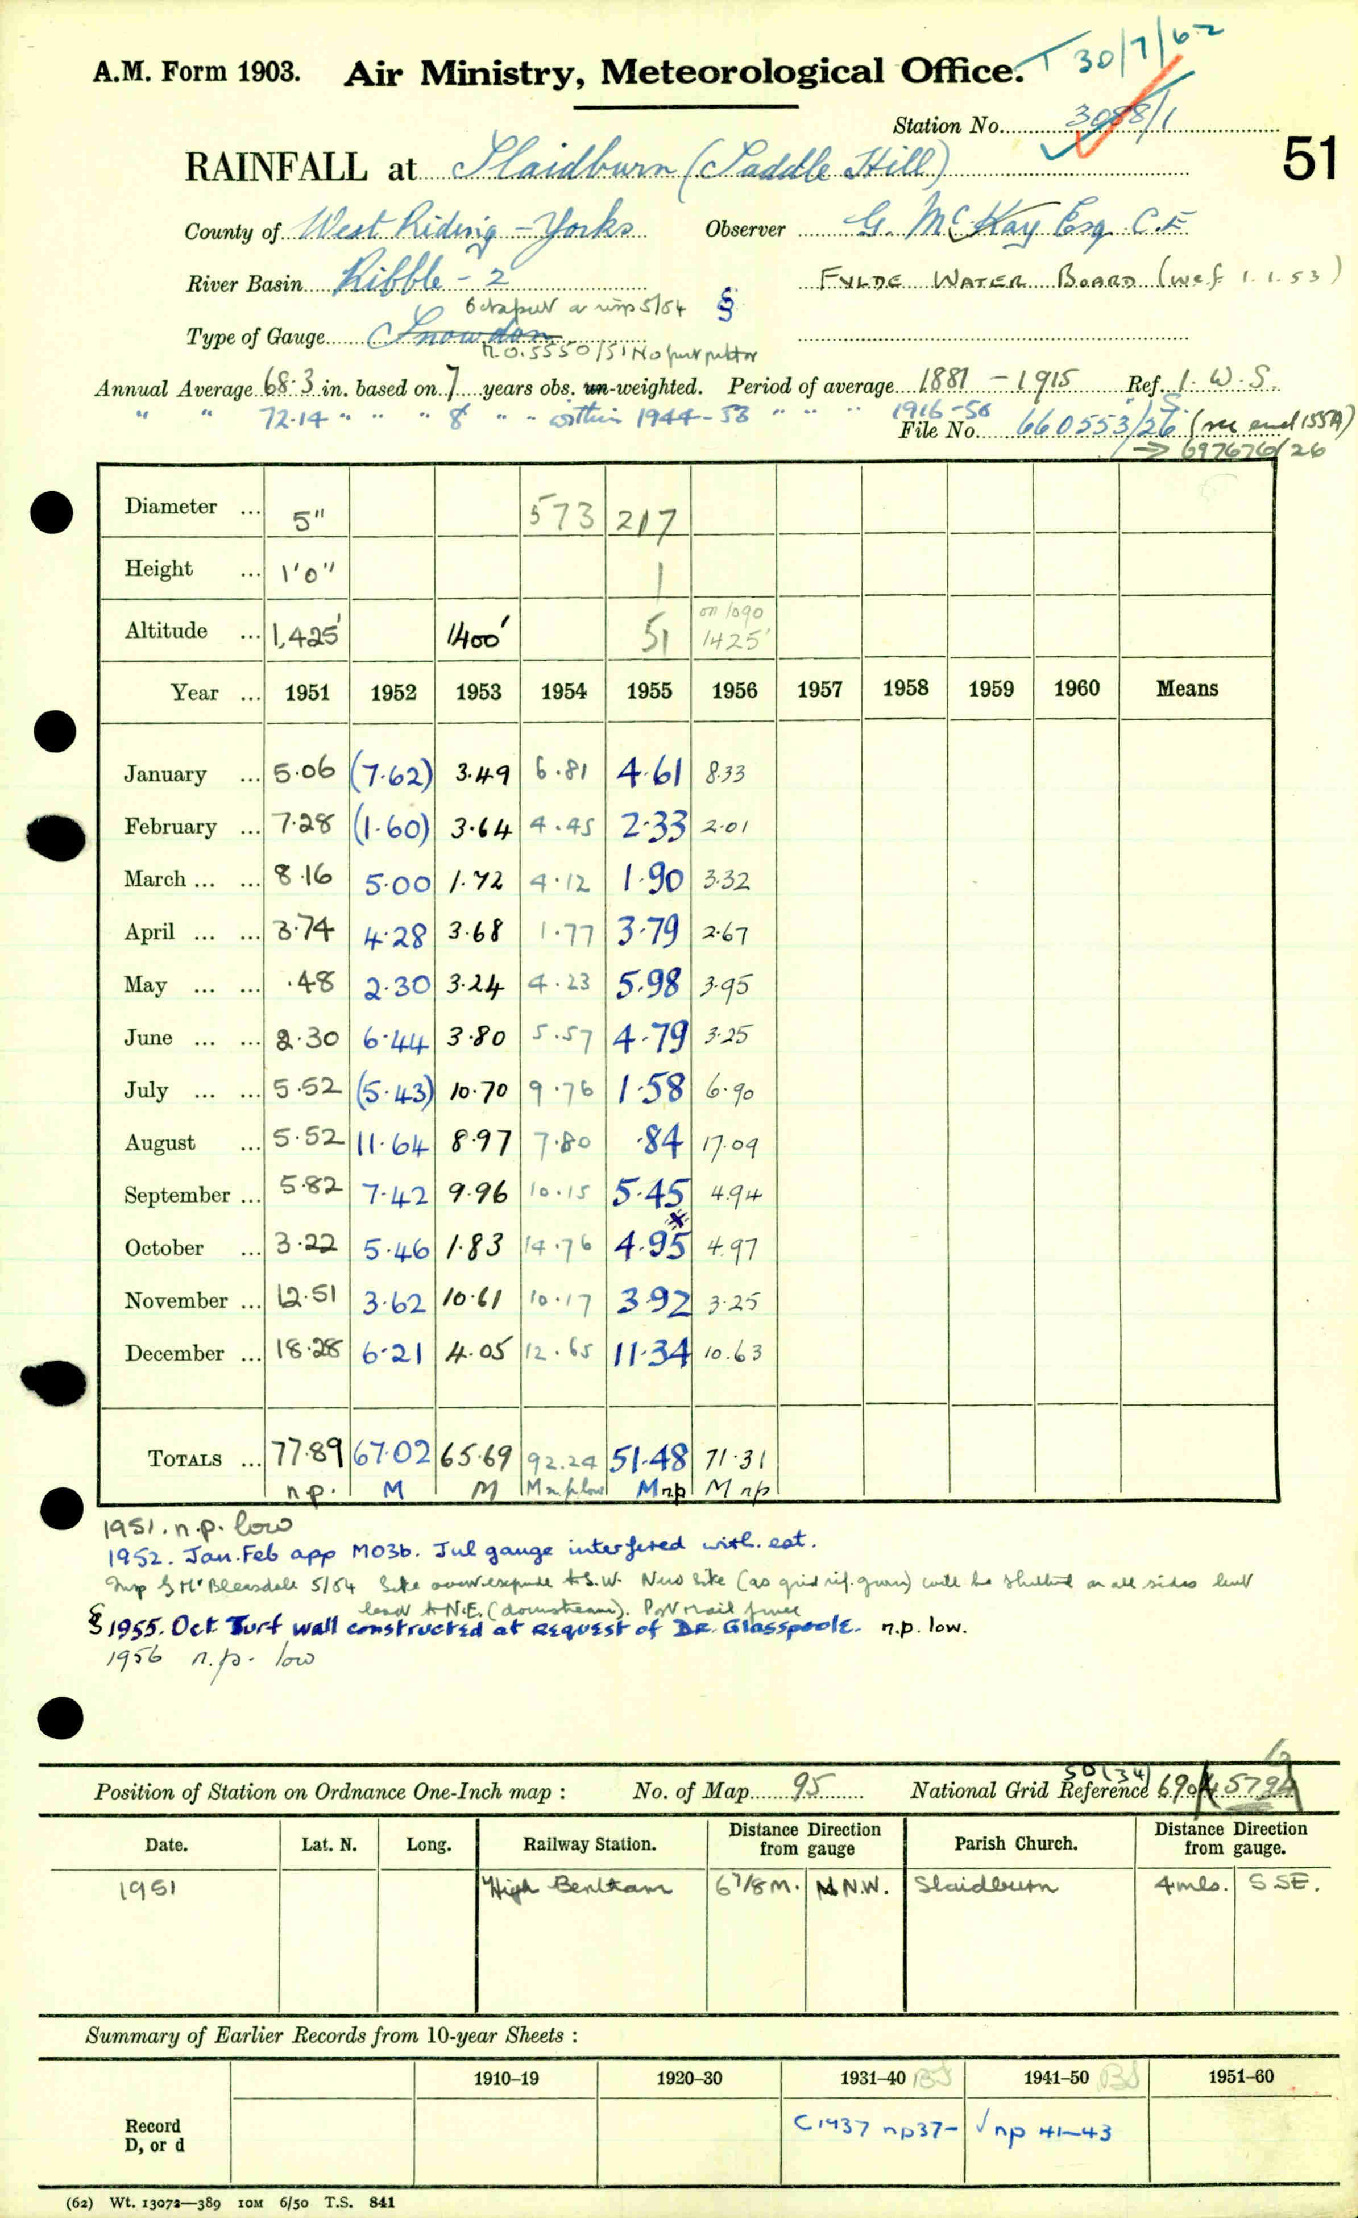 T 30/7/62
A.M. Form 1903. Air Ministry, Meteorological Office.
Station No. 3088/1
51
RAINFALL at Slaidburn (Saddle Hill)
County of West Riding - Yorks Observer G. McKay Esq C.E
River Basin Ribble - 2 FYLDE WATER BOARD (wef 1.1.53)
5/54 §
Type of Gauge Snowdon
M.O. 5550/51 No
Annual Average 68.3 in. based on 7 years obs. un-weighted. Period of average 1881 - 1915 Ref. I.W.S.
" " 72.14 " " " 8 " " within 1944-53 " " " 1916-50
File No. 660553/26 (see end 155A)
→ 697676/26
Diameter ... 5" 573 217
Height ... 1'0" 1
Altitude ... 1,425' 1400' 51 on 1090 1425'
Year ... 1951 1952 1953 1954 1955 1956 1957 1958 1959 1960 Means
January ... 5.06 (7.62) 3.49 6.81 4.61 8.33
February ... 7.28 (1.60) 3.64 4.45 2.33 2.01
March ... ... 8.16 5.00 1.72 4.12 1.90 3.32
April ... ... 3.74 4.28 3.68 1.77 3.79 2.67
May ... ... .48 2.30 3.24 4.23 5.98 3.95
June ... ... 2.30 6.44 3.80 5.57 4.79 3.25
July ... ... 5.52 (5.43) 10.70 9.76 1.58 6.90
August ... 5.52 11.64 8.97 7.80 .84 17.09
September ... 5.82 7.42 9.96 10.15 5.45 4.94
October ... 3.22 5.46 1.83 14.76 4.95 4.97
November ... 12.51 3.62 10.61 10.17 3.92 3.25
December ... 18.28 6.21 4.05 12.65 11.34 10.63
TOTALS ... 77.89 67.02 65.69 92.24 51.48 71.31
n.p. M M M n.p low M np M np
1951. n.p. low
1952. Jan. Feb app MO3b. Jul gauge interfered with. est.
Insp G Mr Bleasdale 5/54 Site overexposed to S.W. New Site (as grid ref. given) will be sheltered on all sides
to N.E. (downstream). Post & rail fence
§ 1955. Oct Turf wall constructed at request of DR. Glasspoole. n.p. low.
1956 n.p. low
Position of Station on Ordnance One-Inch map : No. of Map 95 National Grid Reference
SD (34)
Date. Lat. N. Long. Railway Station. Distance from Direction gauge Parish Church. Distance from Direction gauge.
1951 High Bentham 6 7/8 M. N.W. Slaidburn 4 mls. S SE.
Summary of Earlier Records from 10-year Sheets :
1910–19 1920–30 1931–40 BS 1941–50 BS 1951–60
Record D, or d C1937 np37- √ np 41-43
(62) Wt. 13072—389 10M 6/50 T.S. 841